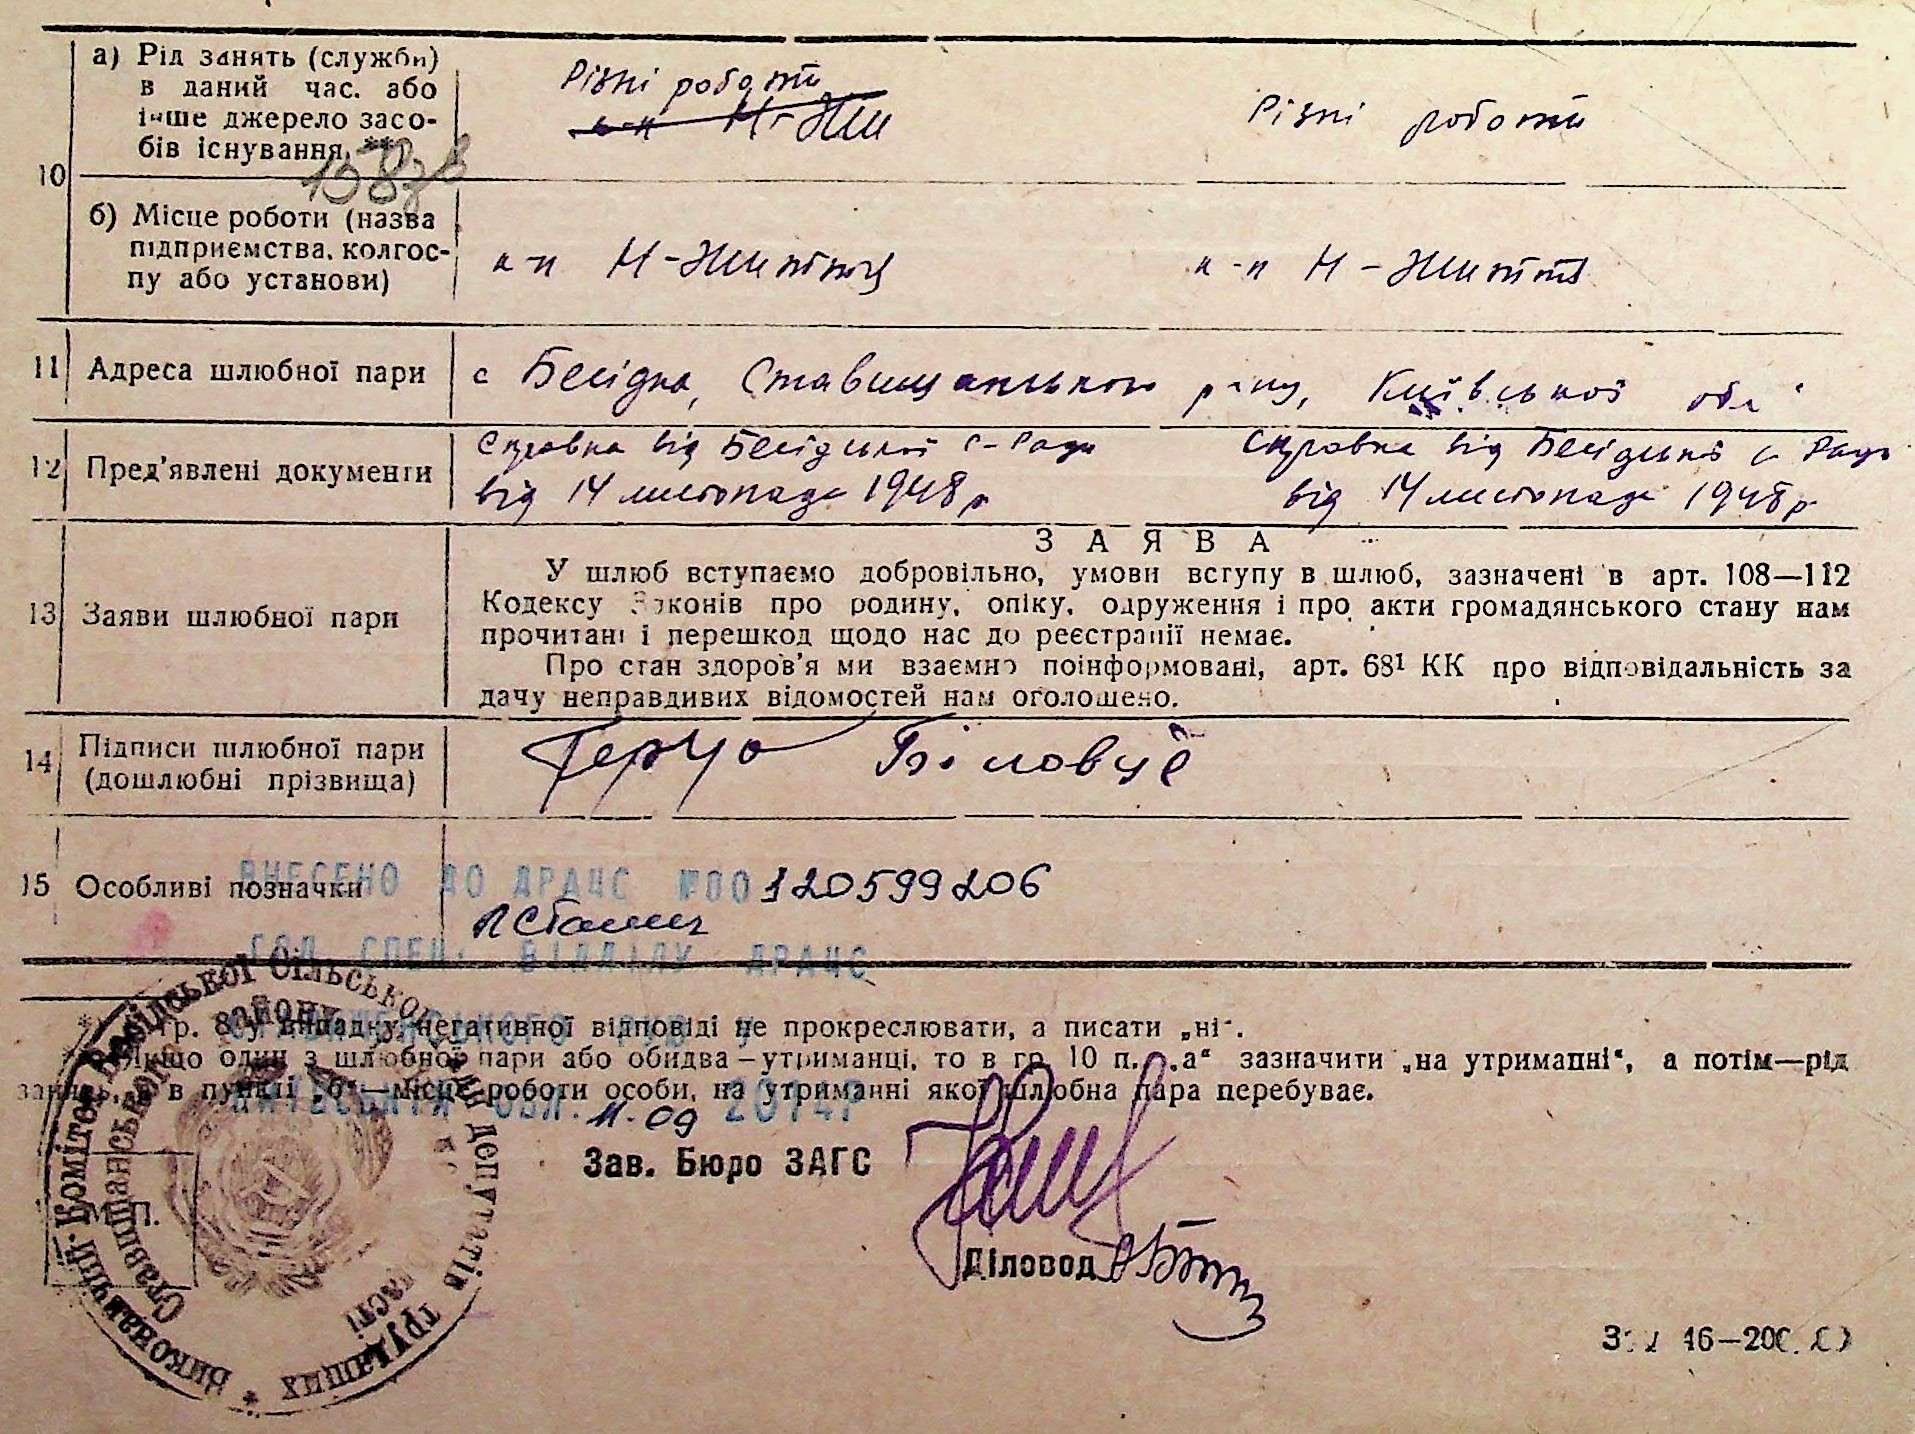 а) Рід занять (служби)
в даний час. або
інше джерело засо-
бів існування. **)
Різні роботи
к-п Н-Жи
Різні роботи
10
б) Місце роботи (назва
підприємства, колгос-
пу або установи)
к-п Н-Життя
к-п Н-Життя
11 Адреса шлюбної пари
с Бесідка, Ставищанського р-ну, Київської обл
12 Пред'явлені документи
Справка від Бесідської с-Ради
від 14 листопада 1948р
Справка від Бесідської с-Ради
від 14 листопада 1948р
ЗАЯВА
13 Заяви шлюбної пари
У шлюб вступаємо добровільно, умови вступу в шлюб, зазначені в арт. 108—112
Кодексу Законів про родину, опіку, одруження і про акти громадянського стану нам
прочитані і перешкод щодо нас до реєстрації немає.
Про стан здоров'я ми взаємно поінформовані, арт. 68¹ КК про відповідальність за
дачу неправдивих відомостей нам оголошено.
14 Підписи шлюбної пари
(дошлюбні прізвища)
15 Особливі позначки
ВНЕСЕНО ДО ДРАЦС №00120599206
СПЕЦ. ВІДДІЛУ ДРАЦС
гр. 8 у випадку негативної відповіді не прокреслювати, а писати „ні".
Якщо один з шлюбної пари або обидва—утриманці, то в гр. 10 п. „а" зазначити „на утриманні", а потім—рід
занять, а в пункті „б"—місце роботи особи, на утриманні якої шлюбна пара перебуває.
ОБЛ. 11.09 2014Р
Зав. Бюро ЗАГС
М. П.
Діловод
Виконавчий Комітет Бесідської сільської Ради депутатів трудящих
Ставищанського району області